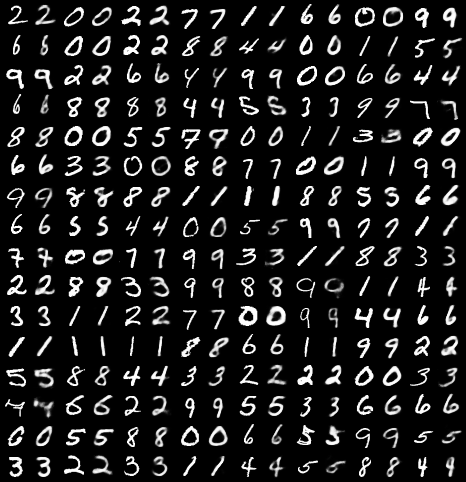 2 2 0 0 2 2 7 7 1 1 6 6 0 0 9 9
6 6 0 0 2 2 8 8 4 4 0 0 1 1 5 5
9 9 2 2 6 6 4 4 9 9 0 0 6 6 4 4
6 6 8 8 8 8 4 4 5 5 3 3 9 9 7 7
8 8 0 0 5 5 7 7 0 0 1 1 3 3 0 0
6 6 3 3 0 0 8 8 7 7 0 0 1 1 9 9
9 9 8 8 8 8 1 1 1 1 8 8 5 5 6 6
6 6 5 5 4 4 0 0 5 5 9 9 7 7 1 1
7 7 0 0 7 7 9 9 3 3 1 1 8 8 3 3
2 2 8 8 3 3 9 9 8 8 9 9 1 1 4 4
3 3 1 1 2 2 7 7 0 0 9 9 4 4 6 6
1 1 1 1 1 1 8 8 6 6 1 1 9 9 2 2
5 5 8 8 4 4 3 3 2 2 2 2 0 0 3 3
6 6 2 2 9 9 5 5 3 3 6 6 6 6
0 0 5 5 8 8 0 0 6 6 5 5 9 9 5 5
3 3 2 2 3 3 1 1 4 4 5 5 8 8 4 4